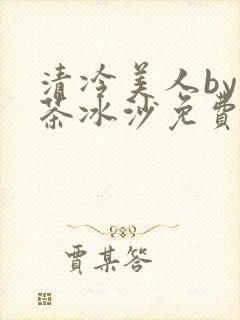 清冷美人by
茶冰沙免费
贾某答